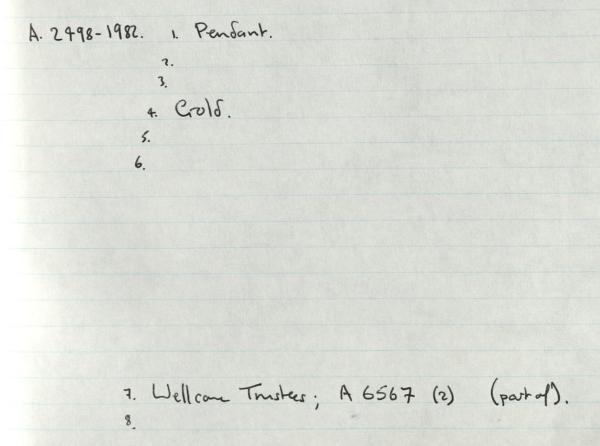 A. 2498-1982. 1. Pendant.
2.
3.
4. Gold.
5.
6.
7. Wellcome Trustees; A 6567 (2) (part of).
8.